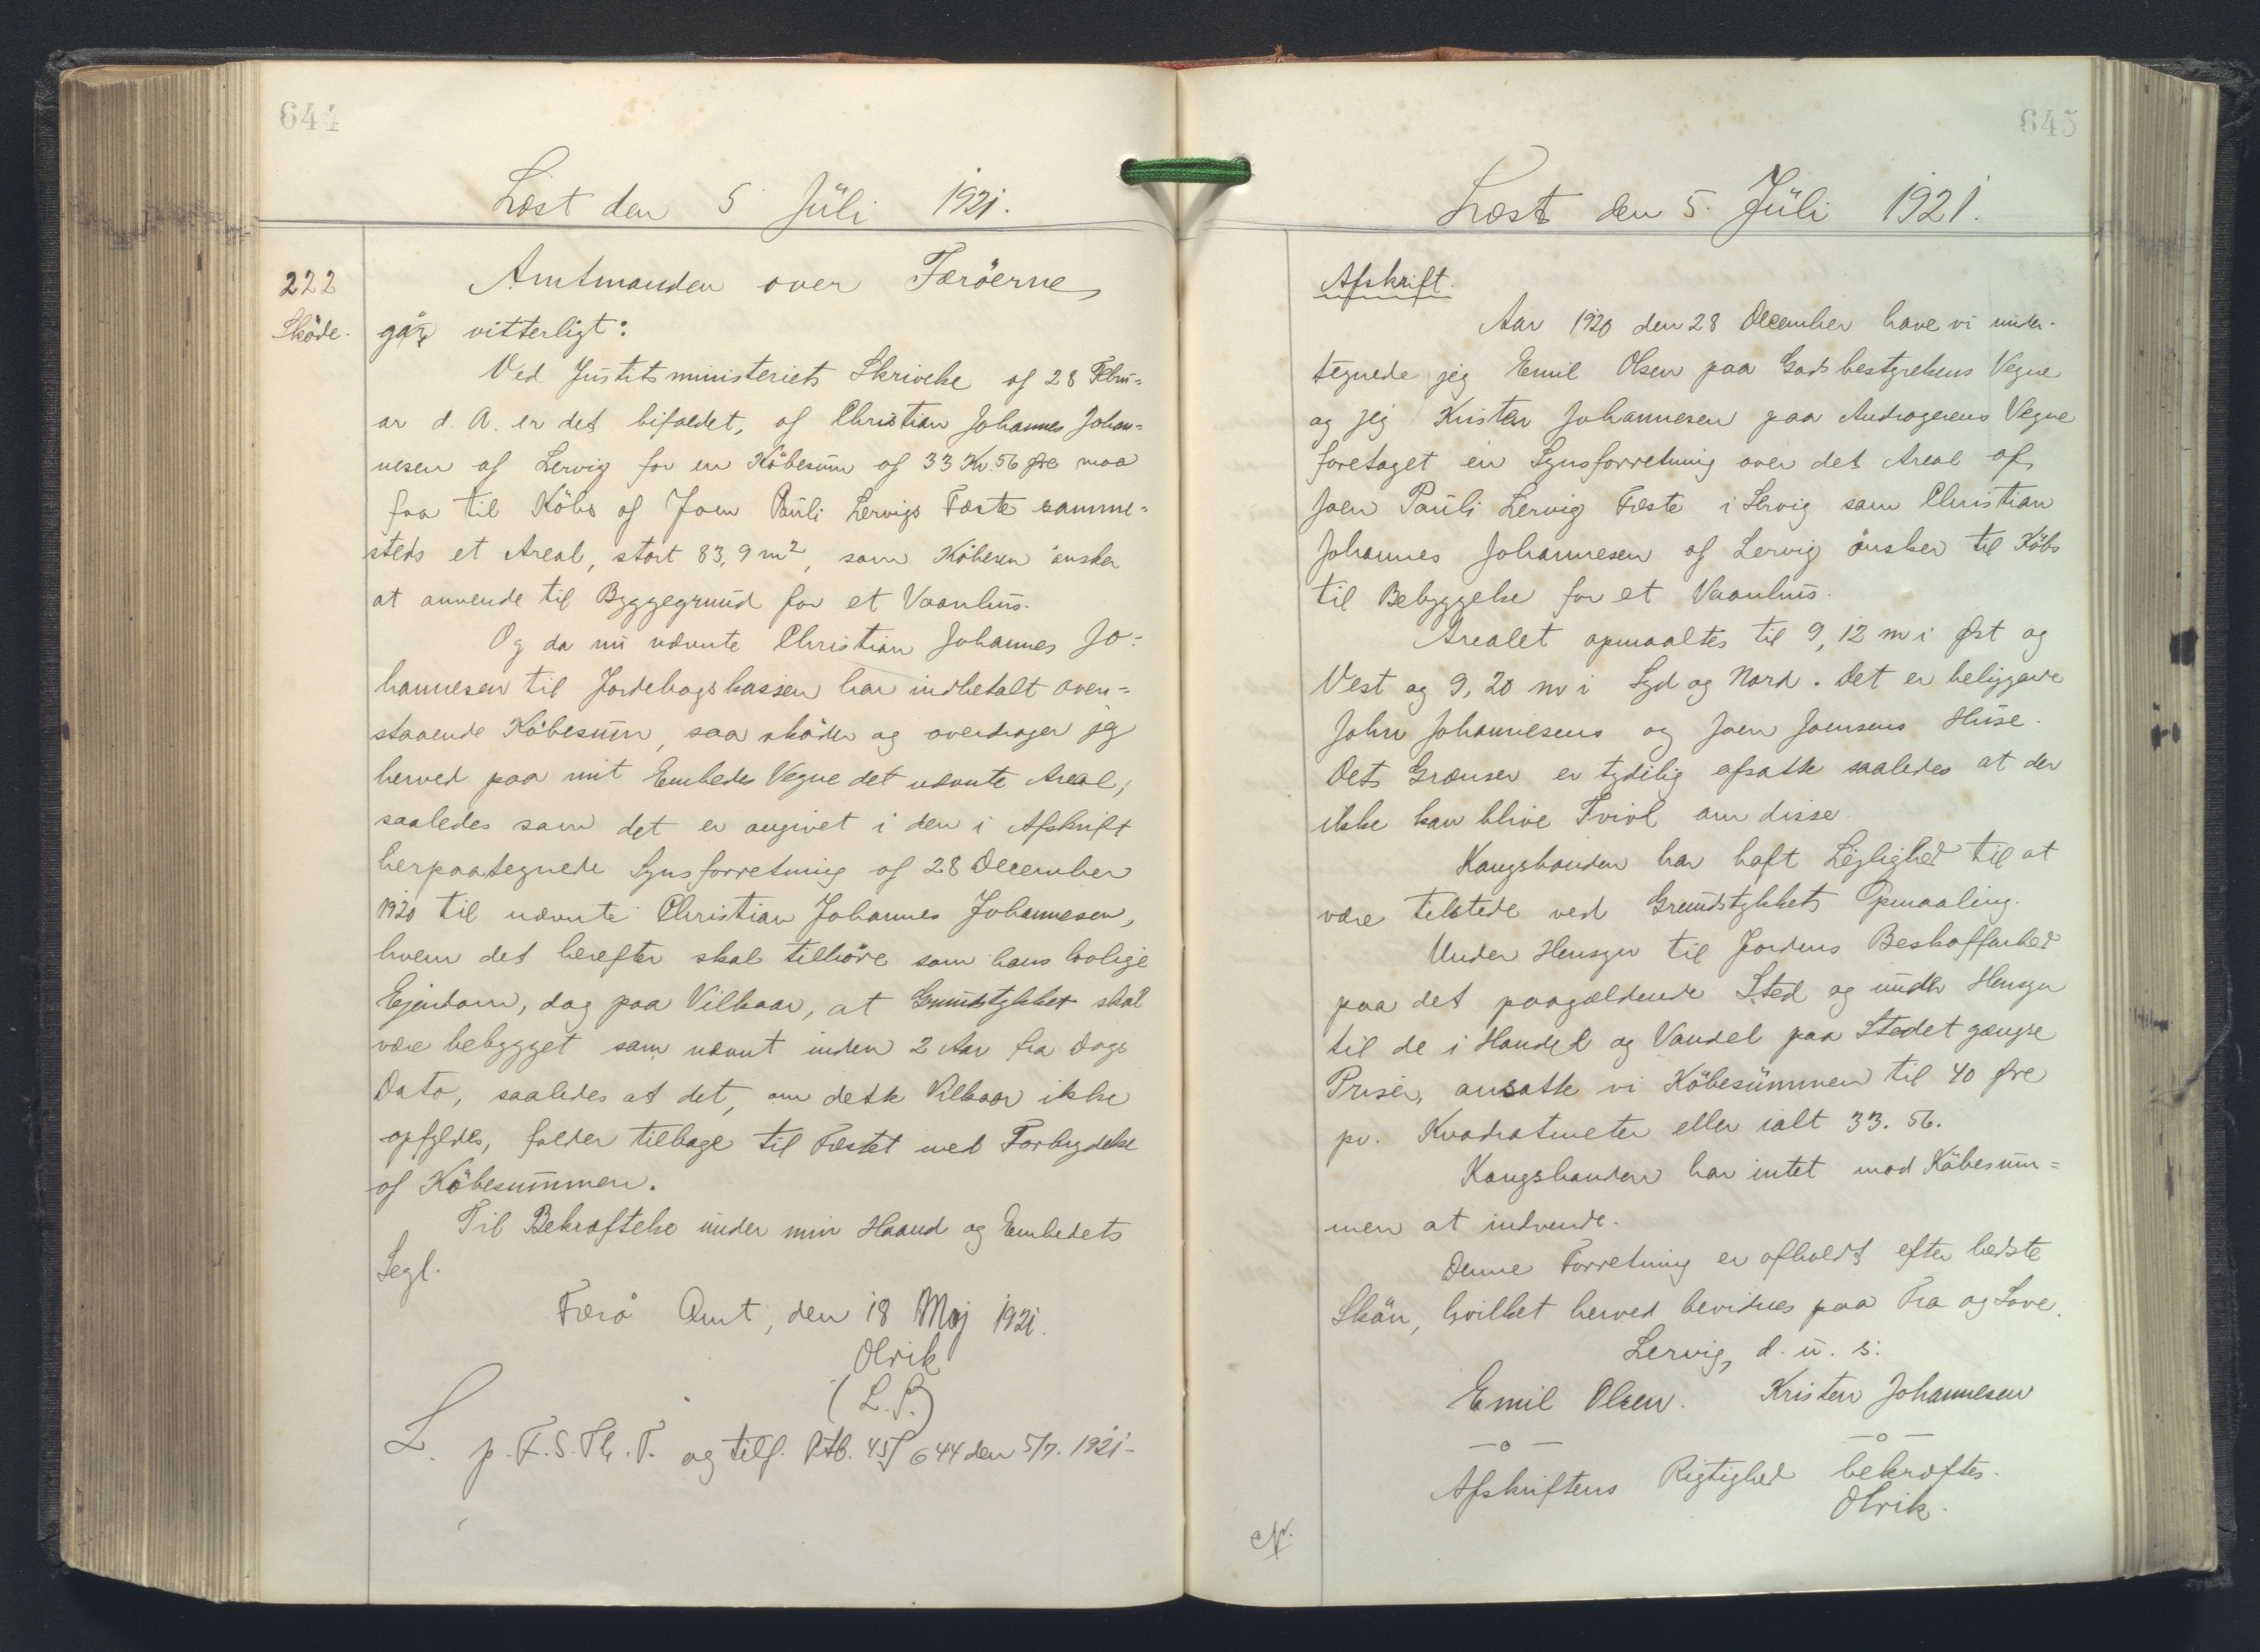 644
Læst den 5 Jüli 1921.
222
Sköde.
Amtmanden over Færöerne
gör vitterligt:
Ved Jüstitsministeriets Skrivelse af 28 Febrü=
ar d. A. er det bifaldet, af Christian Johannes Johan=
nesen af Lervig for en Köbesüm af 33 Kr. 56 Øre maa
faa til Köbs af Joen Paüli Lervigs Fæste samme=
steds et Areal, stort 83,9 m², som Köberen önsker
at anvende til Byggegründ for et Vaanhüs.
Og da nü nævnte Christian Johannes Jo=
hannesen til Jordebogskassen har indbetalt oven=
staaende Köbesüm, saa sköder og overdrager jeg
herved paa mit Embedes Vegne det nævnte Areal,
saaledes som det er angivet i den i Afskrift
herpaategnede Synsforretning af 28 December
1920 til nævnte Christian Johannes Johannesen,
hvem det herefter skal tilhöre som hans lovlige
Ejendom, dog paa Vilkaar, at Gründstykket skal
være bebygget som nævnt inden 2 Aar fra Dags
Dato, saaledes at det, om dette Vilkaar ikke
opfyldes, falder tilbage til Fæstet med Forbrydelse
af Köbesümmen.
Til Bekræftelse ünder min Haand og Embedets
Segl.
Færö Amt, den 18 Maj 1921.
Olrik
(L.S.)
L. p. F. S. Th. T. og tilf. Ptb. 45 f 644 den 5/7. 1921-
645
Læst den 5. Jüli 1921.
Afskrift.
Aar 1920 den 28 December have vi ünder-
tegnede jeg Emil Olsen paa Godsbestyrelsens Vegne
og jeg Kristen Johannesen paa Andragerens Vegne
foretaget en Synsforretning over det Areal af
Joen Paüli Lervig Fæste i Lervig som Christian
Johannes Johannesen af Lervig önsker til Köbs
til Bebyggelse for et Vaanhüs.
Arealet opmaaltes til 9,12 m i Øst og
Vest og 9,20 m i Syd og Nord. Det er beliggende
John Johannesens og Joen Joensens Hüse.
Dets Grænser er tydelig afsatte saaledes at der
ikke kan blive Tvivl om disse.
Kongsbonden har haft Lejlighed til at
være tilstede ved Gründstykkets Opmaaling.
Under Hensyn til Jordens Beskaffenhed
paa det paagældende Sted og ünder Hensyn
til de i Handel og Vandel paa Stedet gængse
Priser, ansatte vi Köbesümmen til 40 Øre
pr. Kvadratmeter eller ialt 33. 56.
Kongsbonden har intet mod Köbesüm=
men at indvende.
Denne Forretning er afholdt efter bedste
Skön, hvilket herved bevidnes paa Tro og Love.
Lervig, d. ü. s:
Emil Olsen. Kristen Johannesen
—o— —o—
Afskriftens Rigtighed bekræftes.
Olrik.